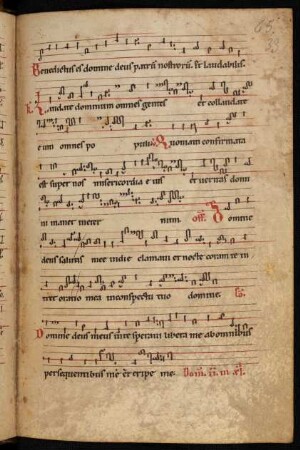 Benedictus es domine deus patrum nostrorum. Et laudabilis.
Laudate dominum omnes gentes et collaudate
eum omnes po puli. Quoniam confirmata
est super nos misericordia eius et veritas domi
ni manet in eter num. Off. Domine
deus salutis mee in die clamavi et nocte coram te in
tret oratio mea in conspectu tuo domine. Co.
Domine deus meus in te speravi libera me ab omnibus
persequentibus me et eripe me.